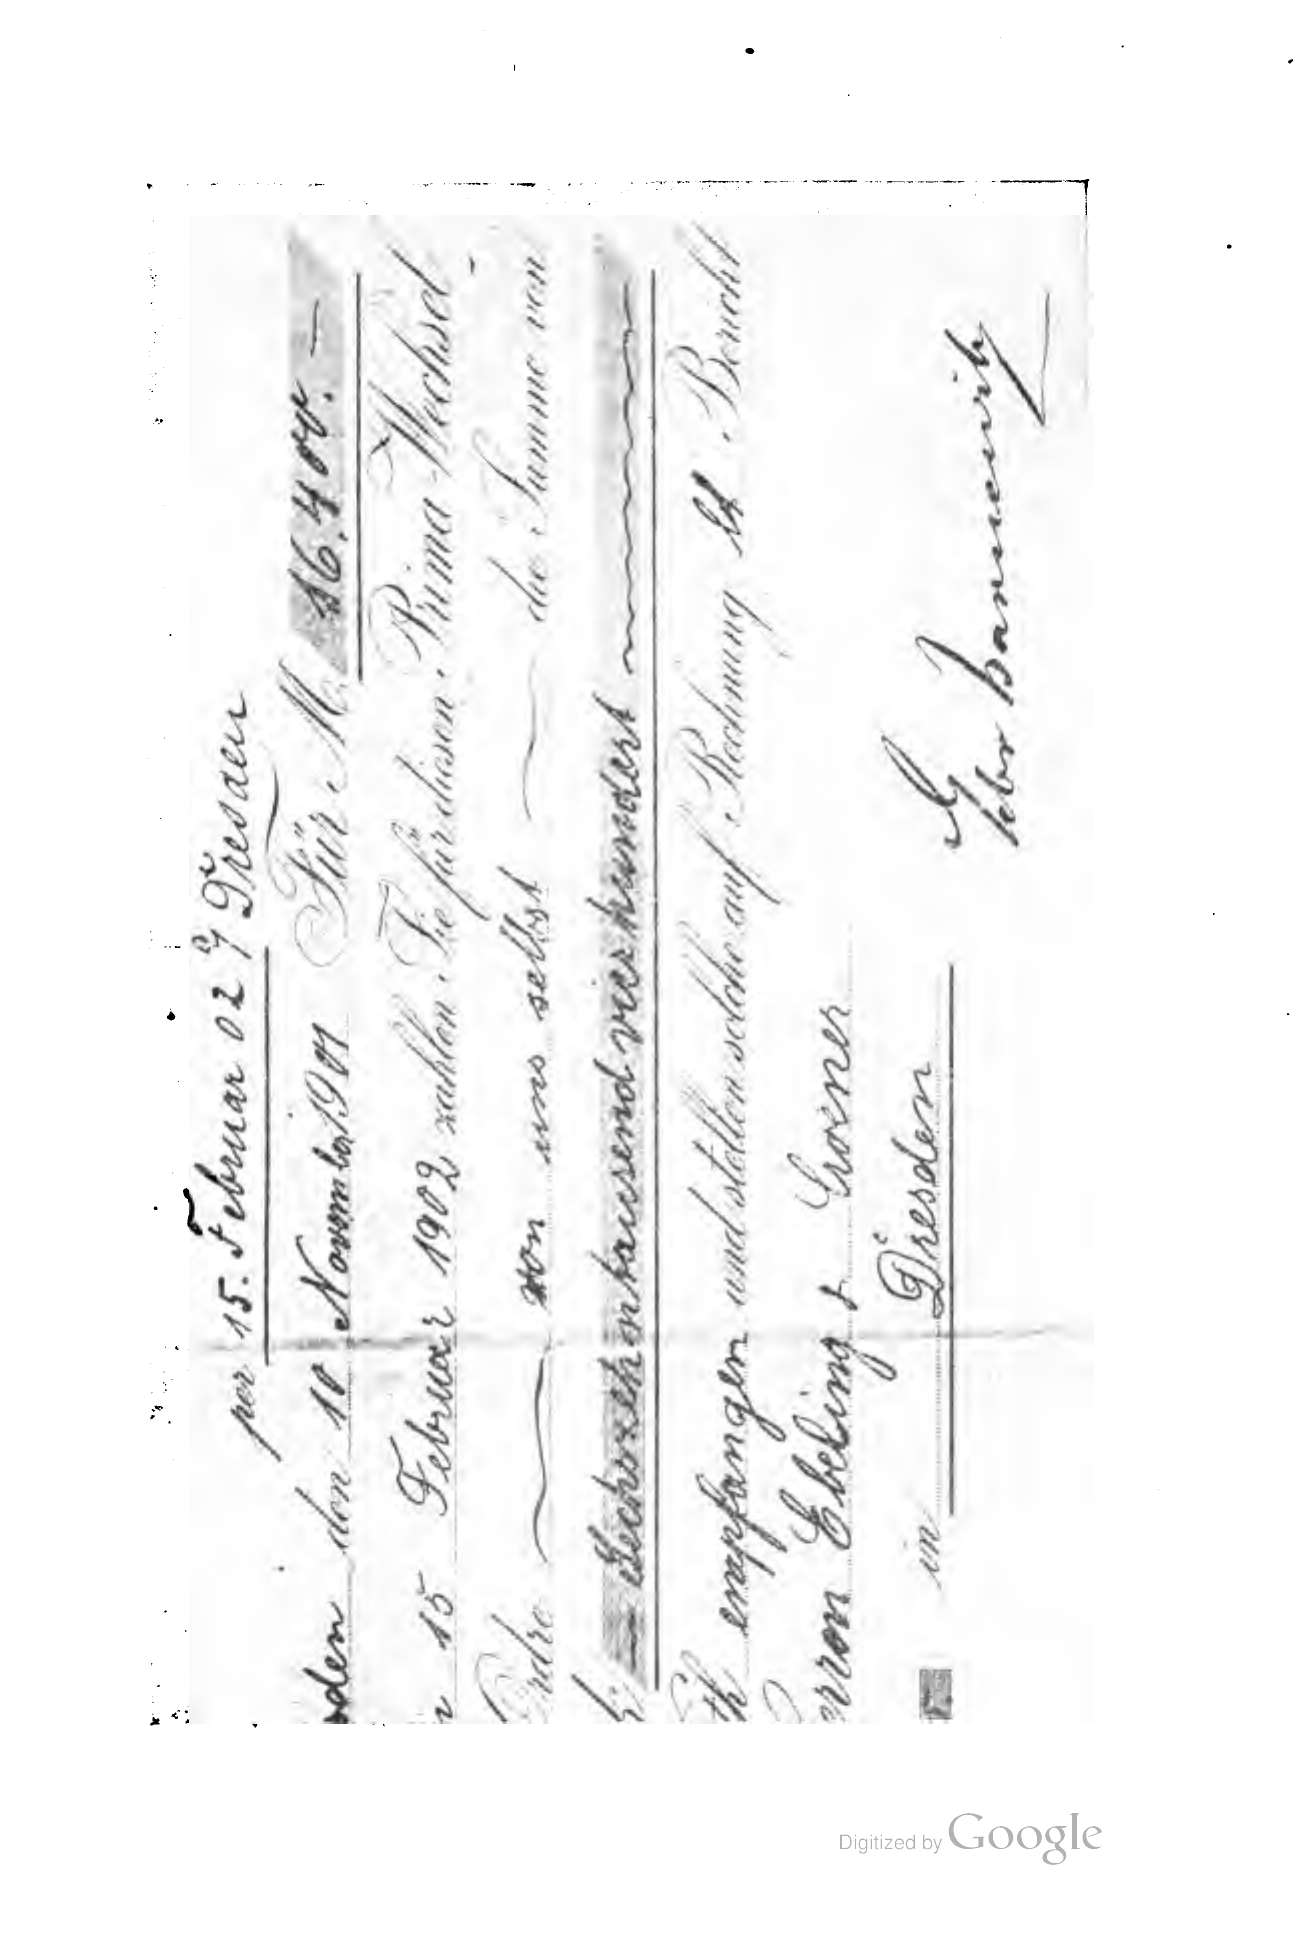 per 15. Februar 02 Dresden
sden den 10 November 1901 Für M 16.400.—
n 15 Februar 1902 zahlen Sie für diesen Prima-Wechsel
Ordre — von uns selbst — die Summe von
— Sechszehntausendvierhundert —
th empfangen und stellen solche auf Rechnung lt. Bericht
erren Ebeling &
in Dresden
Gebr
Digitized by Google